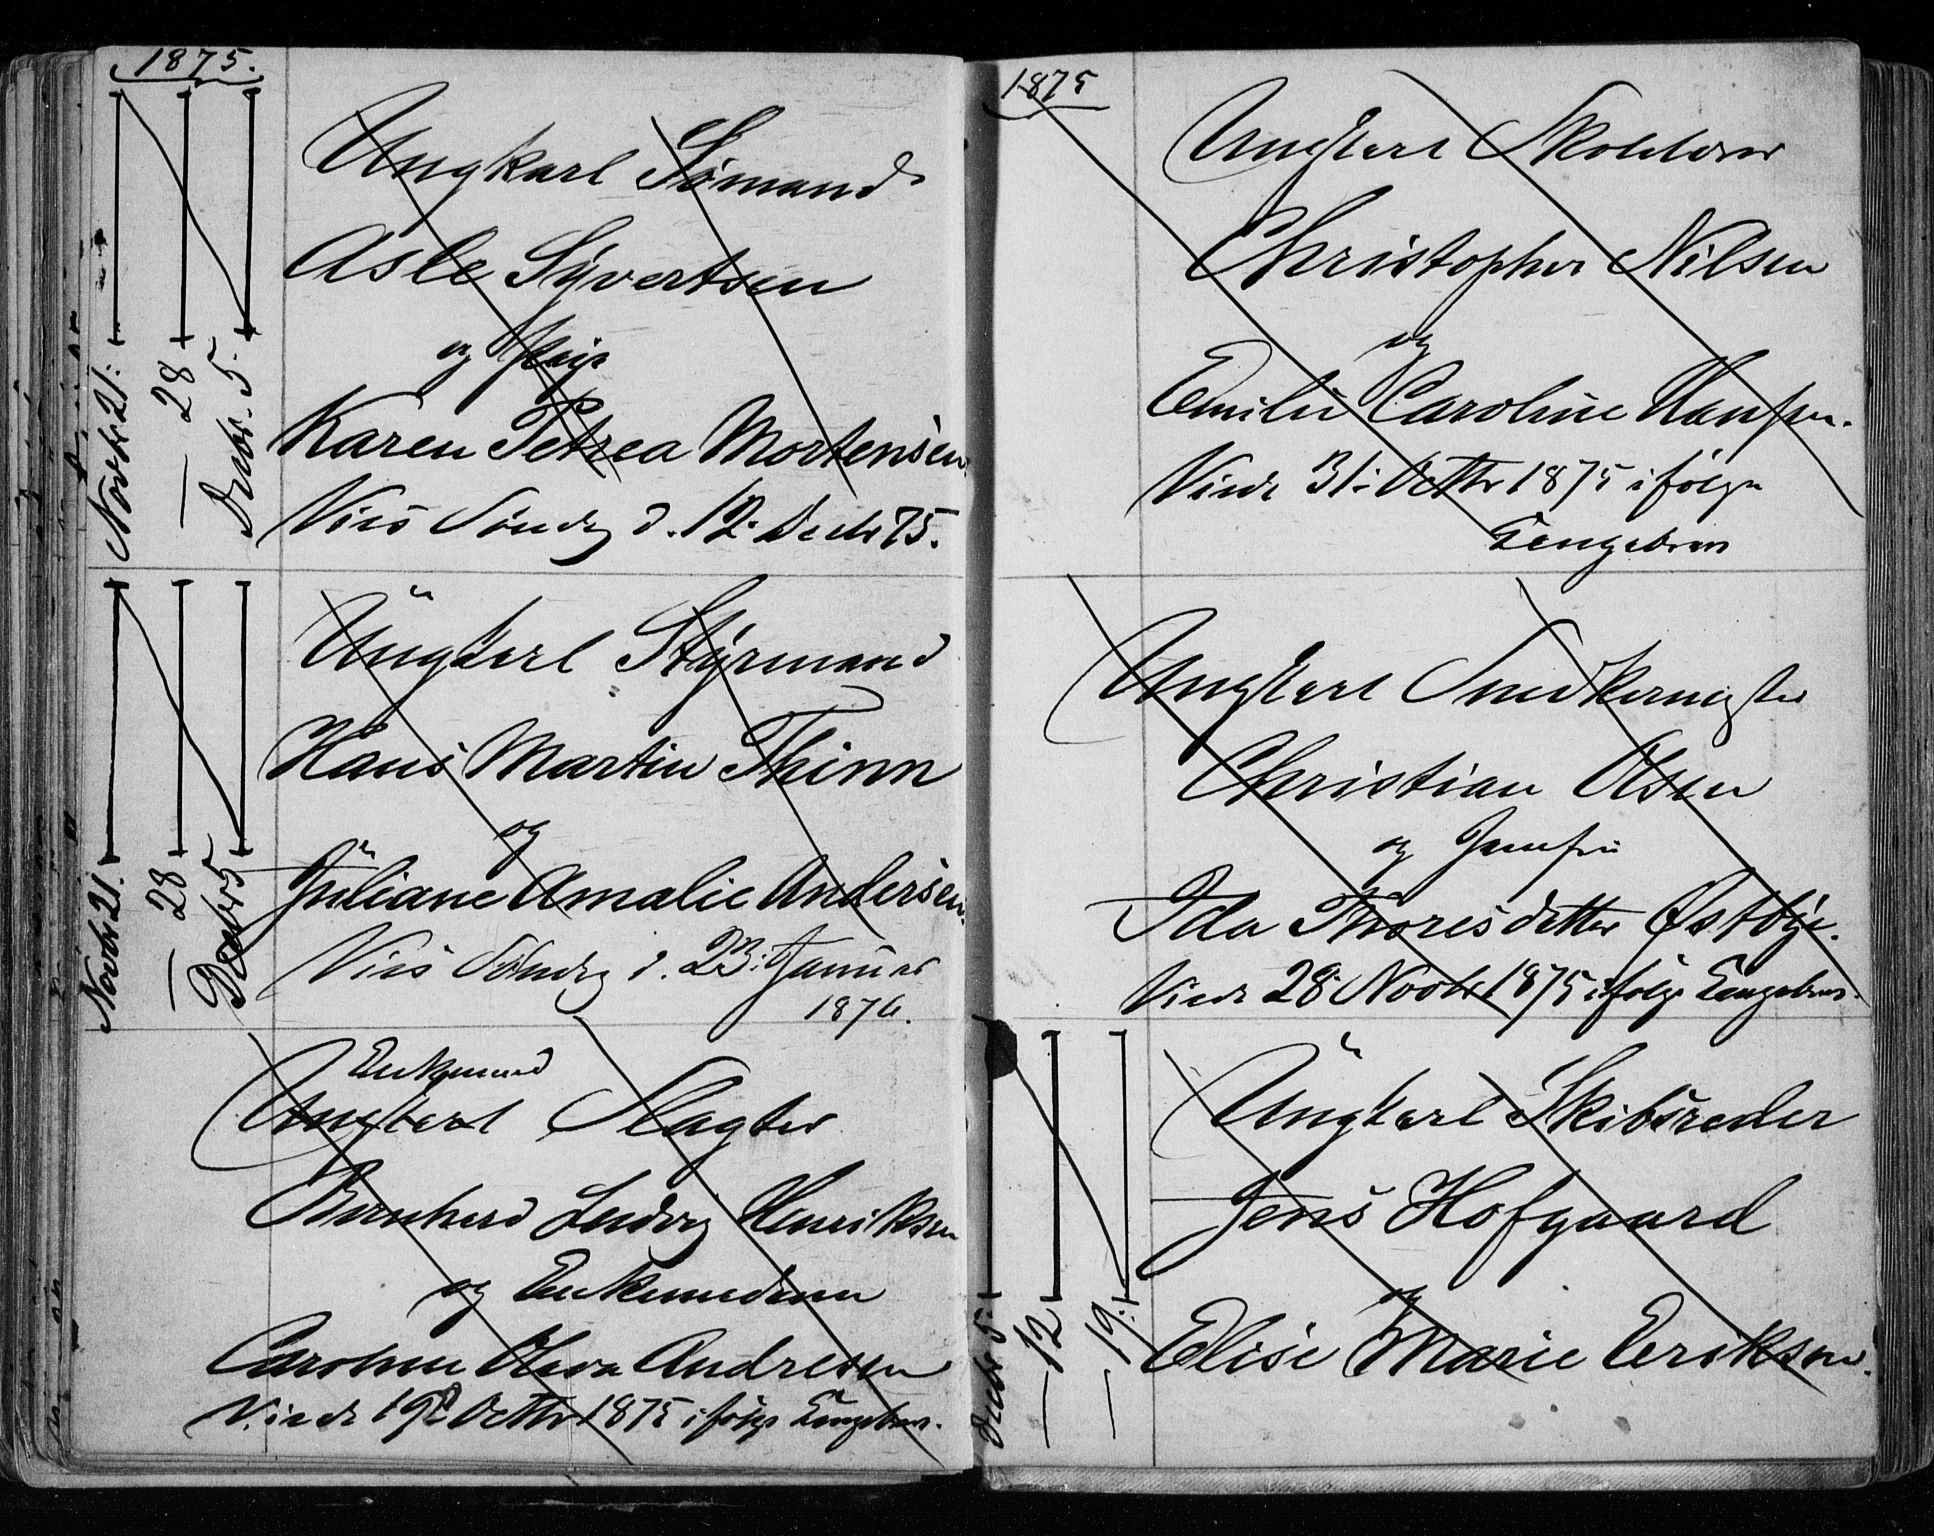 1875.
Novbr 21.
— 28
Decbr. 5.
Ungkarl Sømand
Asle Syvertsen
og Pige
Karen Petrea Mortensen
Vies Søndag d. 12. Decbr 75.
Novbr 21.
— 28
Decbr 5
Ungkarl Styrmand
Hans Martin Thinn
og
Juliane Amalie Andersen.
Vies Søndag d. 23. Januar
1876.
Enkemand
Ungkarl Slagter
Bernhard Ludvig Henriksen
og Enkemadam
Andresen
Viede Octbr 1875 ifølge Længebrev.
1875
Ungkarl
Christopher Nilsen
og
Emilie Caroline Hansen.
Viede 31: Octbr 1875 ifølge
Længebrev
Ungkarl Snedkermester
Christian Olsen
og Jomfru
Ida Thoresdatter Østbye.
Viede 28 Novbr 1875 ifølge Længebrev.
Decbr 5.
— 12
— 19.
Ungkarl Skibsreder
Jens Hofgaard
og
Elise Marie Eriksen.